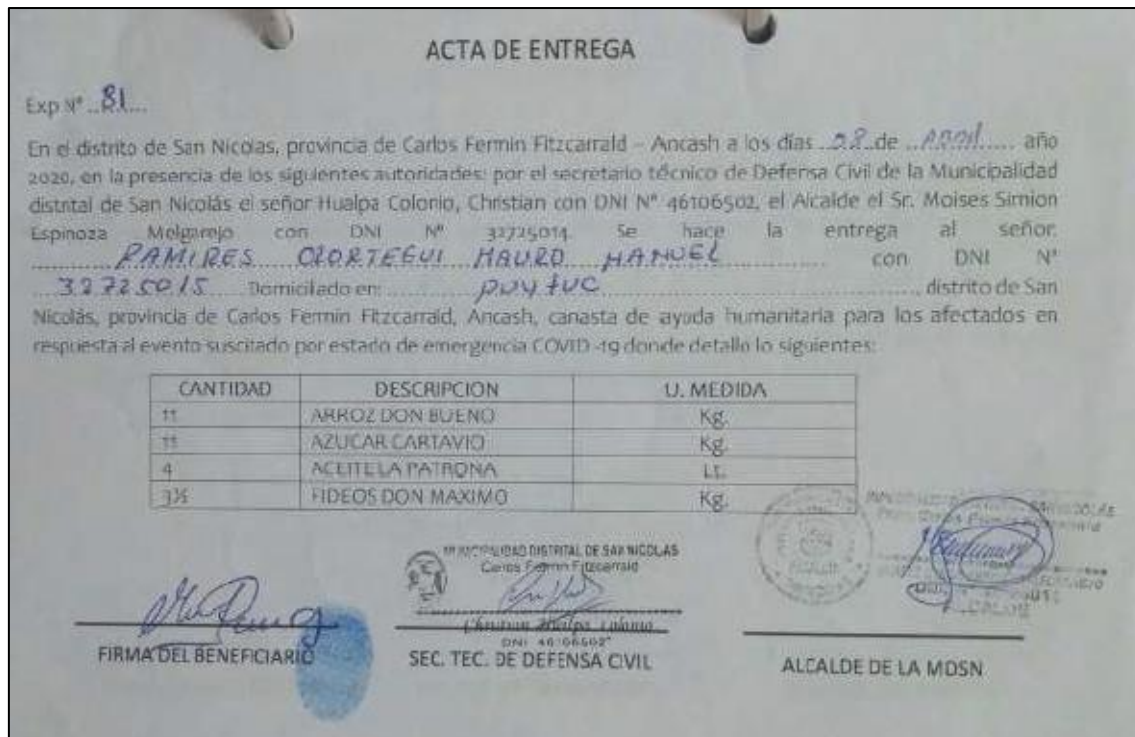 ACTA DE ENTREGA
Exp N° 81
En el distrito de San Nicolas, provincia de Carlos Fermin Fitzcarrald – Ancash a los días 28 de Abril año
2020, en la presencia de los siguientes autoridades: por el secretario técnico de Defensa Civil de la Municipalidad
distrital de San Nicolás el señor Hualpa Colonio, Christian con DNI N° 46106502, el Alcalde el Sr. Moises Simion
Espinoza Melgarejo con DNI N° 32725014 Se hace la entrega al señor:
RAMIRES OLORTEGUI MAURO MANUEL con DNI N°
32725015 Domiciliado en: puytuc, distrito de San
Nicolás, provincia de Carlos Fermin Fitzcarrald, Ancash, canasta de ayuda humanitaria para los afectados en
respuesta al evento suscitado por estado de emergencia COVID -19 donde detallo lo siguientes:
CANTIDAD DESCRIPCION U. MEDIDA
11 ARROZ DON BUENO Kg.
11 AZUCAR CARTAVIO Kg.
4 ACEITE LA PATRONA Lt.
3½ FIDEOS DON MAXIMO Kg.
MUNICIPALIDAD DISTRITAL DE SAN NICOLAS
Carlos Fermin Fitzcarrald
Christian Hualpa Colonio
DNI 46106502
FIRMA DEL BENEFICIARIO
SEC. TEC. DE DEFENSA CIVIL
ALCALDE DE LA MDSN